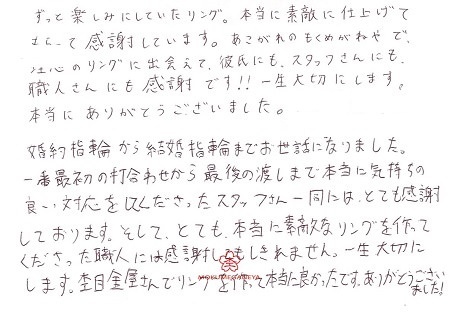 ずっと楽しみにしていたリング。本当に素敵に仕上げて
もらって感謝しています。あこがれのもくめがねやで、
注心のリングに出会えて、彼氏にも、スタッフさんにも、
職人さんにも感謝です!!一生大切にします。
本当にありがとうございました。
婚約指輪から結婚指輪までお世話になりました。
一番最初の打合わせから最後の渡しまで本当に気持ちの
良い対応をしくださったスタッフさん一同には、とても感謝
しております。そして、とても、本当に素敵なリングを作って
くださった職人には感謝してもしきれません。一生大切に
します。杢目金屋さんでリングを作って本当に良かったです。ありがとうござい
ました!
MOKUMEGANEYA